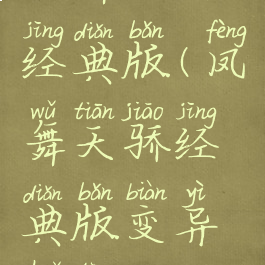 jīng diǎn bǎn fèng
经典版(凤
wǔ tiān jiāo jīng
舞天骄经
diǎn bǎn biàn yì
典版变异